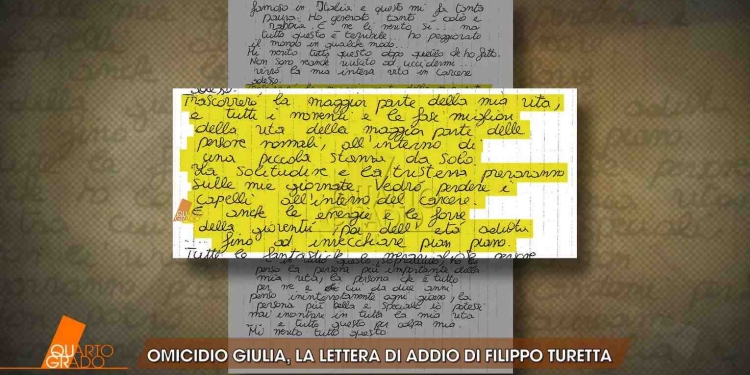 famoso in Italia e questo mi fa tanta
paura. Ho generato tanto odio e
rabbia. E me li merito sì... ma
tutto questo è terribile... ho peggiorato
il mondo in qualche modo...
Mi merito tutto questo dopo quello che ho fatto.
Non sono neanche riuscito ad uccidermi...
vivrò la mia intera vita in carcere
adesso.
Trascorrerò la maggior parte della mia vita,
e tutti i momenti e le fasi migliori
della vita della maggior parte delle
persone normali, all'interno di
una piccola stanza da solo.
La solitudine e la tristezza prevarranno
sulle mie giornate. Vedrò perdere i
capelli all'interno del carcere.
E anche le energie e le forze
della gioventù, poi dell'età adulta
fino ad invecchiare pian piano.
Tutte le fantastiche e meravigliose persone
perso la persona più importante della
mia vita, la persona che è tutto
per me, e che cui da due anni
penso ininterrottamente ogni giorno, la
persona più bella e speciale io potessi
mai incontrare in tutta la mia vita
... e tutto questo per colpa mia.
Mi merito tutto questo
QUARTO
GRADO
QUARTO
GRADO
OMICIDIO GIULIA, LA LETTERA DI ADDIO DI FILIPPO TURETTA